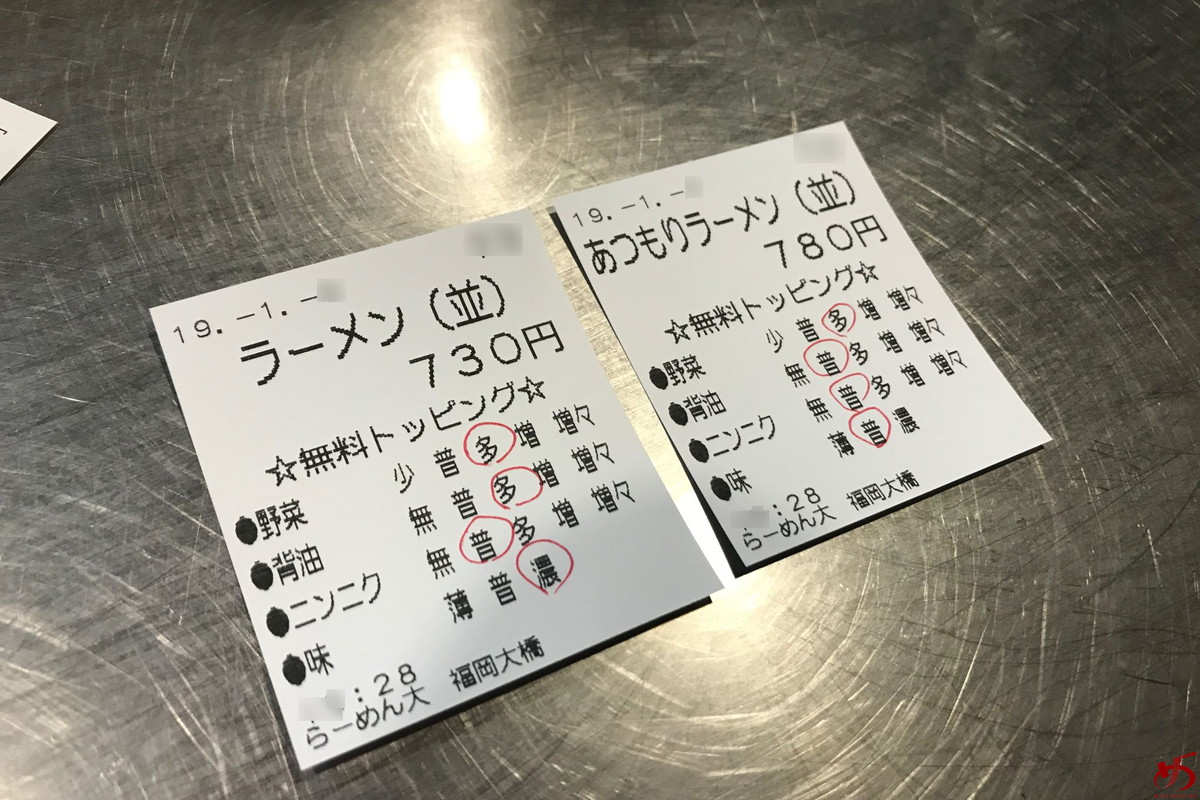 19.-1.-
ラーメン(並)
730円
☆無料トッピング☆
●野菜 少 普 多 増 増々
●背油 無 普 多 増 増々
●ニンニク 無 普 多 増 増々
●味 薄 普 濃
:28
らーめん大 福岡大橋
19.-1.-
あつもりラーメン(並)
780円
☆無料トッピング☆
●野菜 少 普 多 増 増々
●背油 無 普 多 増 増々
●ニンニク 無 普 多 増 増々
●味 薄 普 濃
:28
らーめん大 福岡大橋